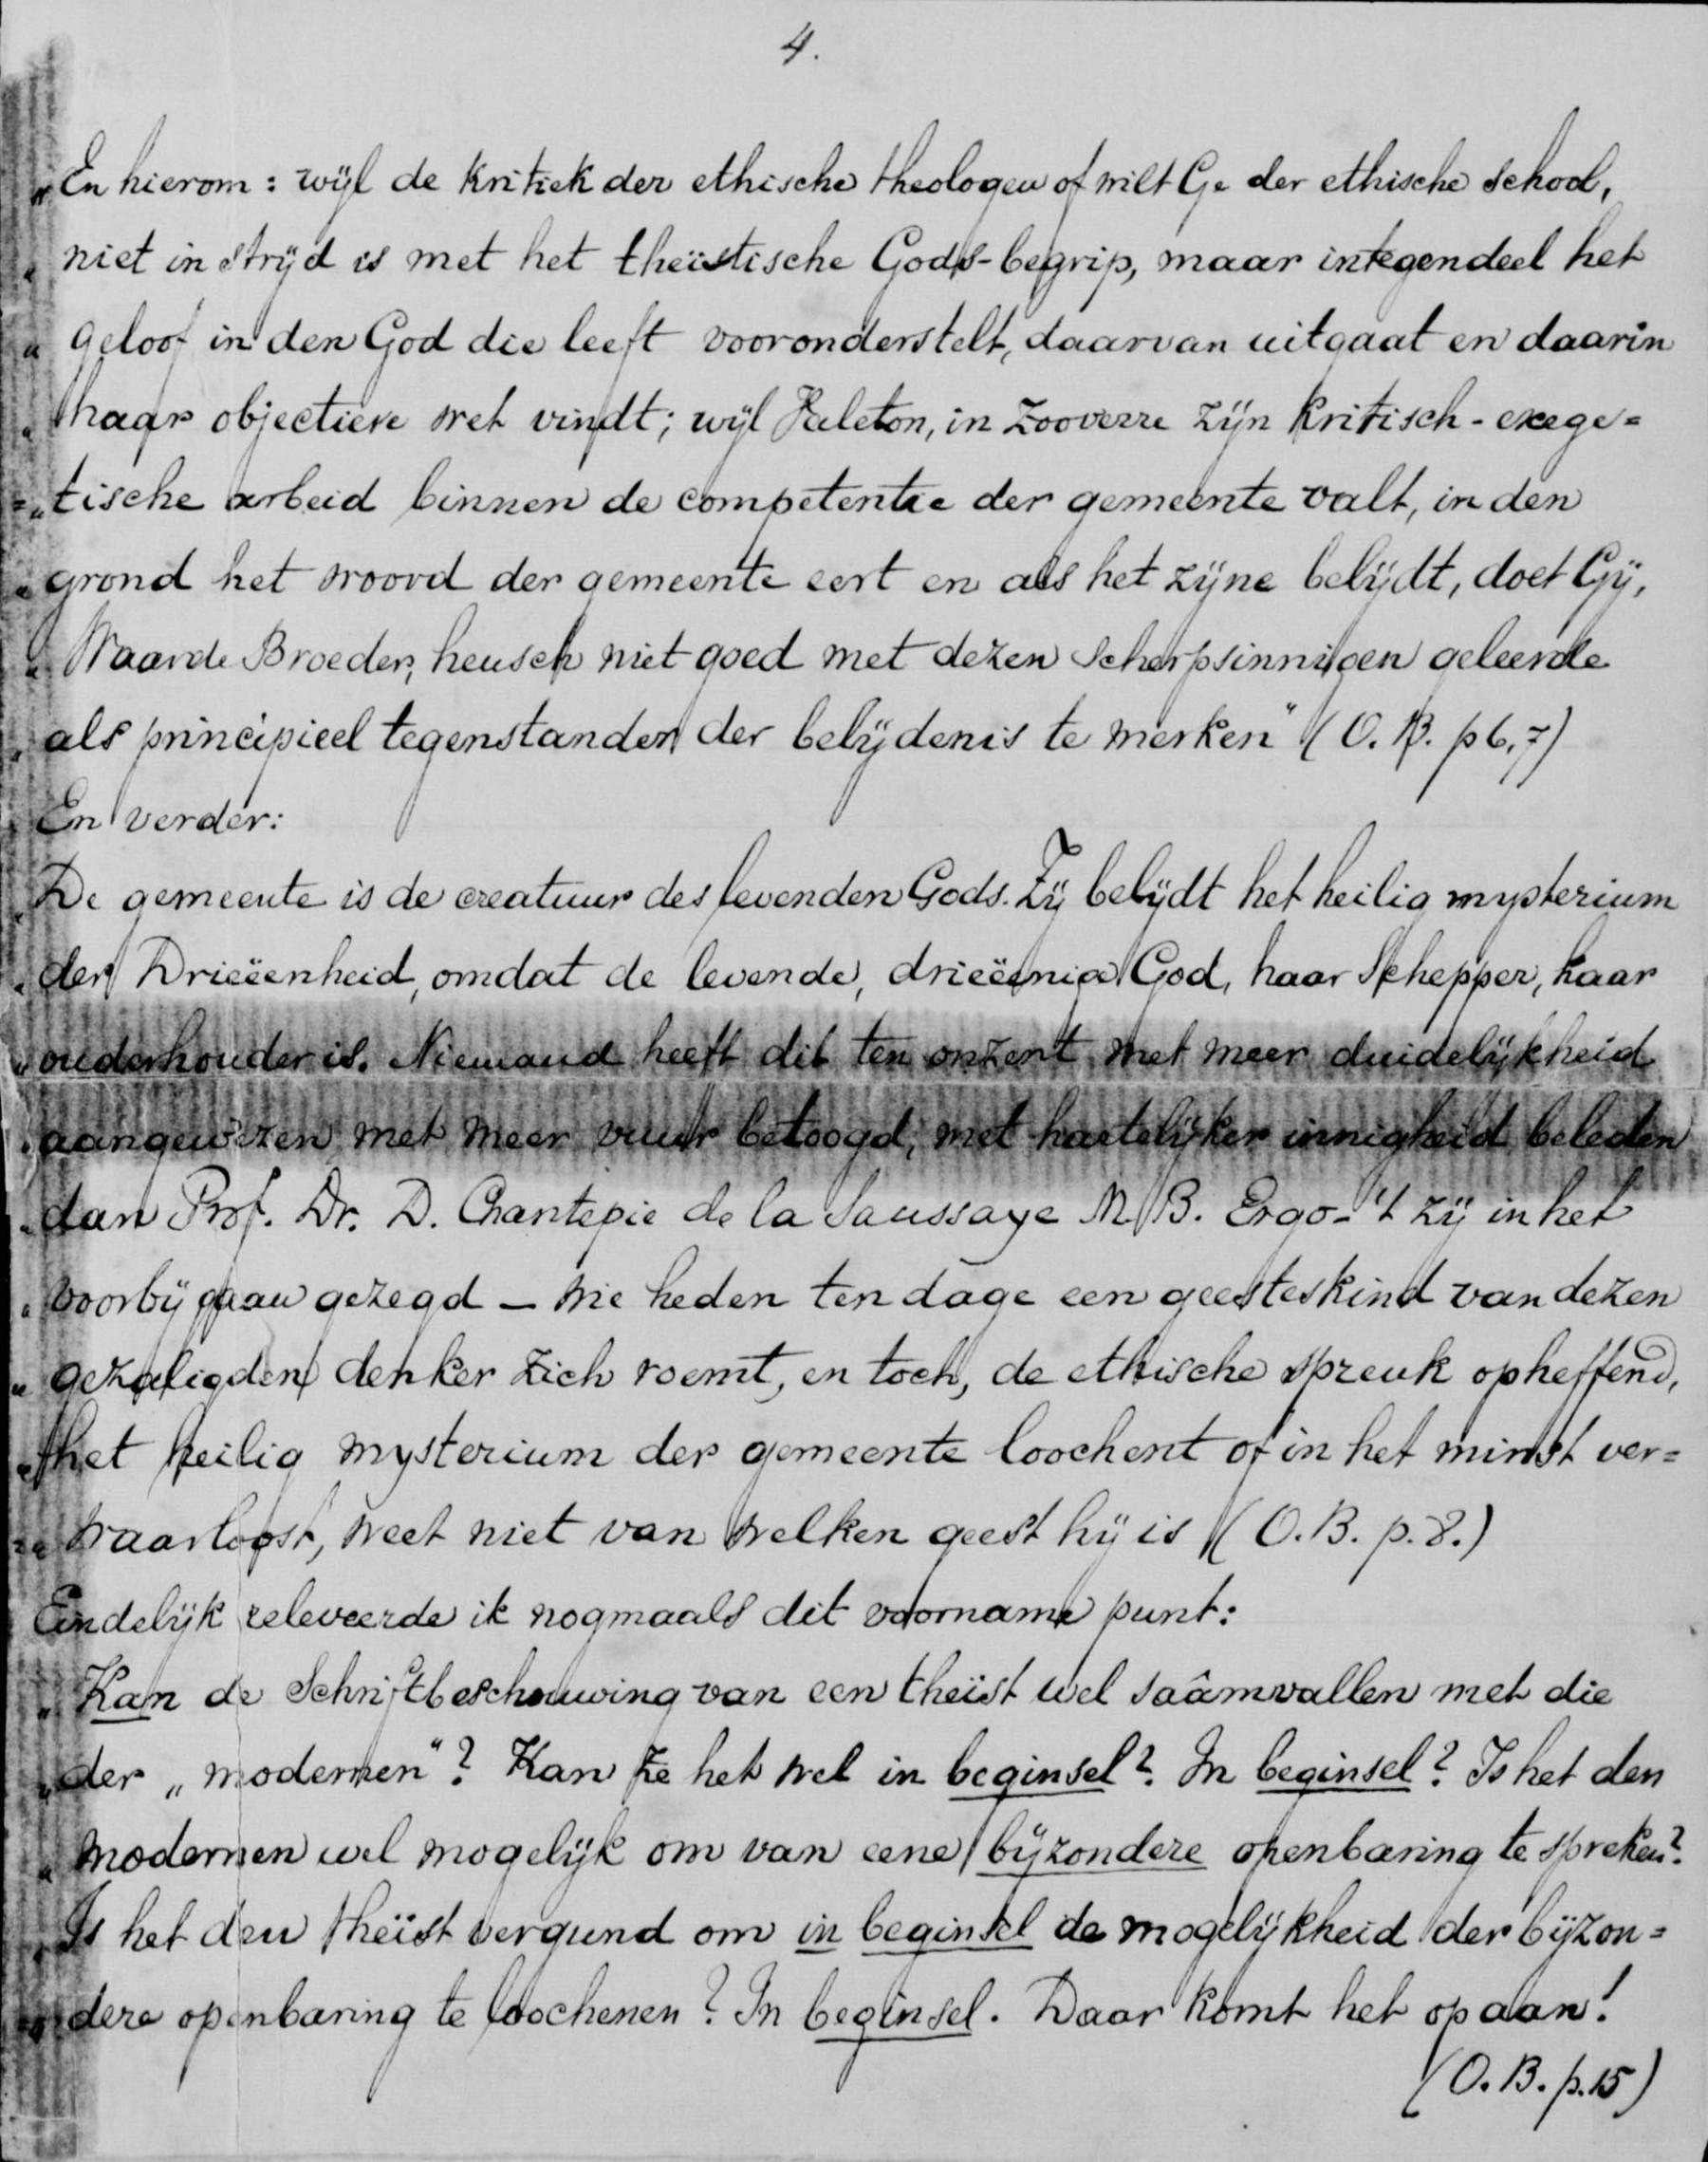 4.
„En hierom: wijl de kritiek der ethische theologen of wilt Ge der ethische school,
„ niet in strijd is met het theïstische Gods-begrip, maar integendeel het
„ geloof in den God die leeft vooronderstelt, daarvan uitgaat en daarin
„ haar objectieve wet vindt; wijl Valeton, in zooverre zijn kritisch-exege=
=„tische arbeid binnen de competentie der gemeente valt, in den
„ grond het woord der gemeente eert en als het zijne belijdt, doet Gij,
„ Waarde Broeder, heusch niet goed met dezen scherpsinnigen geleerde
„ als principieel tegenstander der belijdenis te merken" (O. B. p 6, 7)
En verder:
„De gemeente is de creatuur des levenden Gods. Zij belijdt het heilig mysterium
„der Drieëenheid, omdat de levende, drieëenige God, haar Schepper, haar
„ onderhouder is. Niemand heeft dit ten onzent met meer duidelijkheid
„aangewezen, met meer vuur betoogd, met hartelijker innigheid beleden
„dan Prof. Dr. D. Chantepie de la Saussaye M. B. Ergo - 't zij in het
„ voorbijgaan gezegd — wie heden ten dage een geesteskind van dezen
„ gezaligden denker zich roemt, en toch, de ethische spreuk opheffend,
„het heilig mysterium der gemeente loochent of in het minst ver=
=„ waarloost, weet niet van welken geest hij is (O. B. p. 8.)
Eindelijk releveerde ik nogmaals dit voorname punt:
„ Kan de Schriftbeschouwing van een theïst wel saâmvallen met die
„der „modernen"? Kan ze het wel in beginsel? In beginsel? Is het den
„ modernen wel mogelijk om van eene bijzondere openbaring te spreken?
„Is het den theïst vergund om in beginsel de mogelijkheid der bijzon=
=„dere openbaring te loochenen? In beginsel. Daar komt het op aan!
(O. B. p. 15)